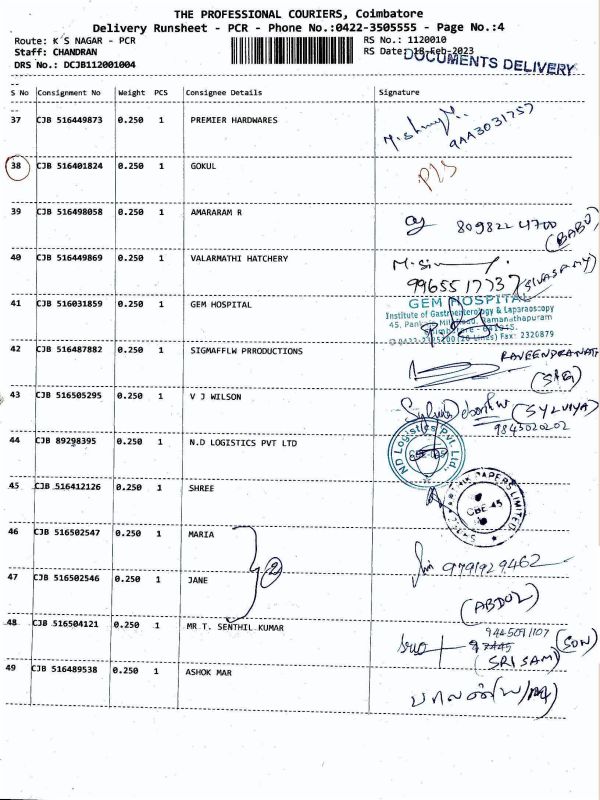 THE PROFESSIONAL COURIERS, Coimbatore
Delivery Runsheet - PCR - Phone No.:0422-3505555 - Page No.:4
Route: K S NAGAR - PCR RS No.: 1120010
Staff: CHANDRAN RS Date: 18-Feb-2023
DRS No.: DCJB112001004 DOCUMENTS DELIVERY
S No Consignment No Weight PCS Consignee Details Signature
37 CJB 516449873 0.250 1 PREMIER HARDWARES
9443031757
38 CJB 516401824 0.250 1 GOKUL P/S
39 CJB 516498058 0.250 1 AMARARAM R 8098224700
(BABU)
40 CJB 516449869 0.250 1 VALARMATHI HATCHERY
9965517737 (SIVASAMY)
41 CJB 516031859 0.250 1 GEM HOSPITAL GEM HOSPITAL
Institute of Gastroenterology & Laparoscopy
45, Ramanathapuram
Fax: 2320879
42 CJB 516487882 0.250 1 SIGMAFFLW PRRODUCTIONS
RAVEENDRANATH
43 CJB 516505295 0.250 1 V J WILSON (SYLVIYA)
9845020202
44 CJB 89298395 0.250 1 N.D LOGISTICS PVT LTD ND Logistics Pvt. Ltd.
45 CJB 516412126 0.250 1 SHREE PAPERS LIMITED
CBE-45
46 CJB 516502547 0.250 1 MARIA
9791929462
2
47 CJB 516502546 0.250 1 JANE
(ABDUL)
48 CJB 516504121 0.250 1 MR T. SENTHIL KUMAR 9445091107
(SON)
(SRISAMI)
49 CJB 516489538 0.250 1 ASHOK MAR